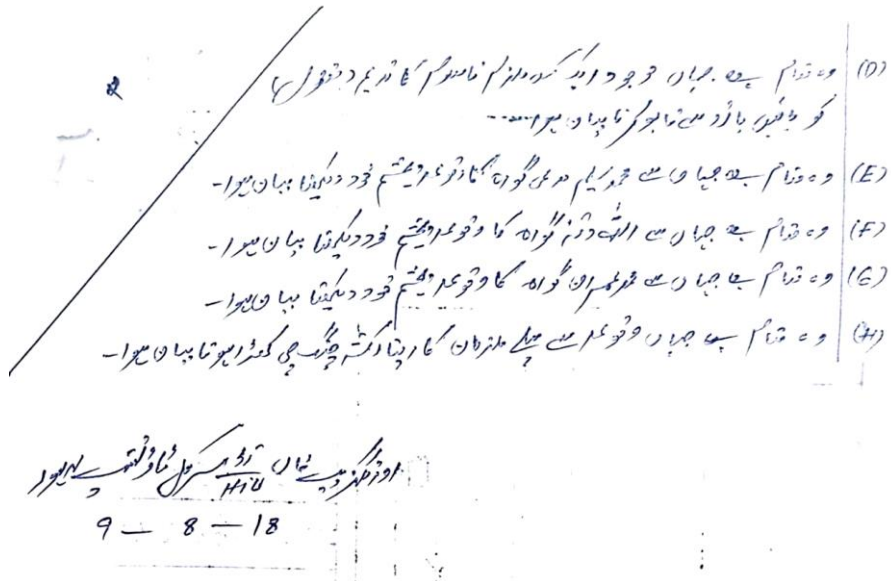 2
(D) وہ مقام ہے جہاں موجود ایک کس ملزم نامعلوم کا ندیم مقتول
کو بازو سے قابو کرنا بیان ہوا۔....
(E) وہ مقام ہے جہاں سے محمد سلیم مدعی گواہ کا وقوعہ بچشم خود دیکھنا بیان ہوا۔
(F) وہ مقام ہے جہاں سے اللہ دتہ گواہ کا وقوعہ بچشم خود دیکھنا بیان ہوا۔
(G) وہ مقام ہے جہاں سے محمد عمران گواہ کا وقوعہ بچشم خود دیکھنا بیان ہوا۔
(H) وہ مقام ہے جہاں وقوعہ سے پہلے ملزمان کا اپنا رکشہ چنگ چی کھڑا ہونا بیان ہوا۔
اورنگزیب خان HIU سرکل ٹاؤن شپ لاہور
9 – 8 – 18